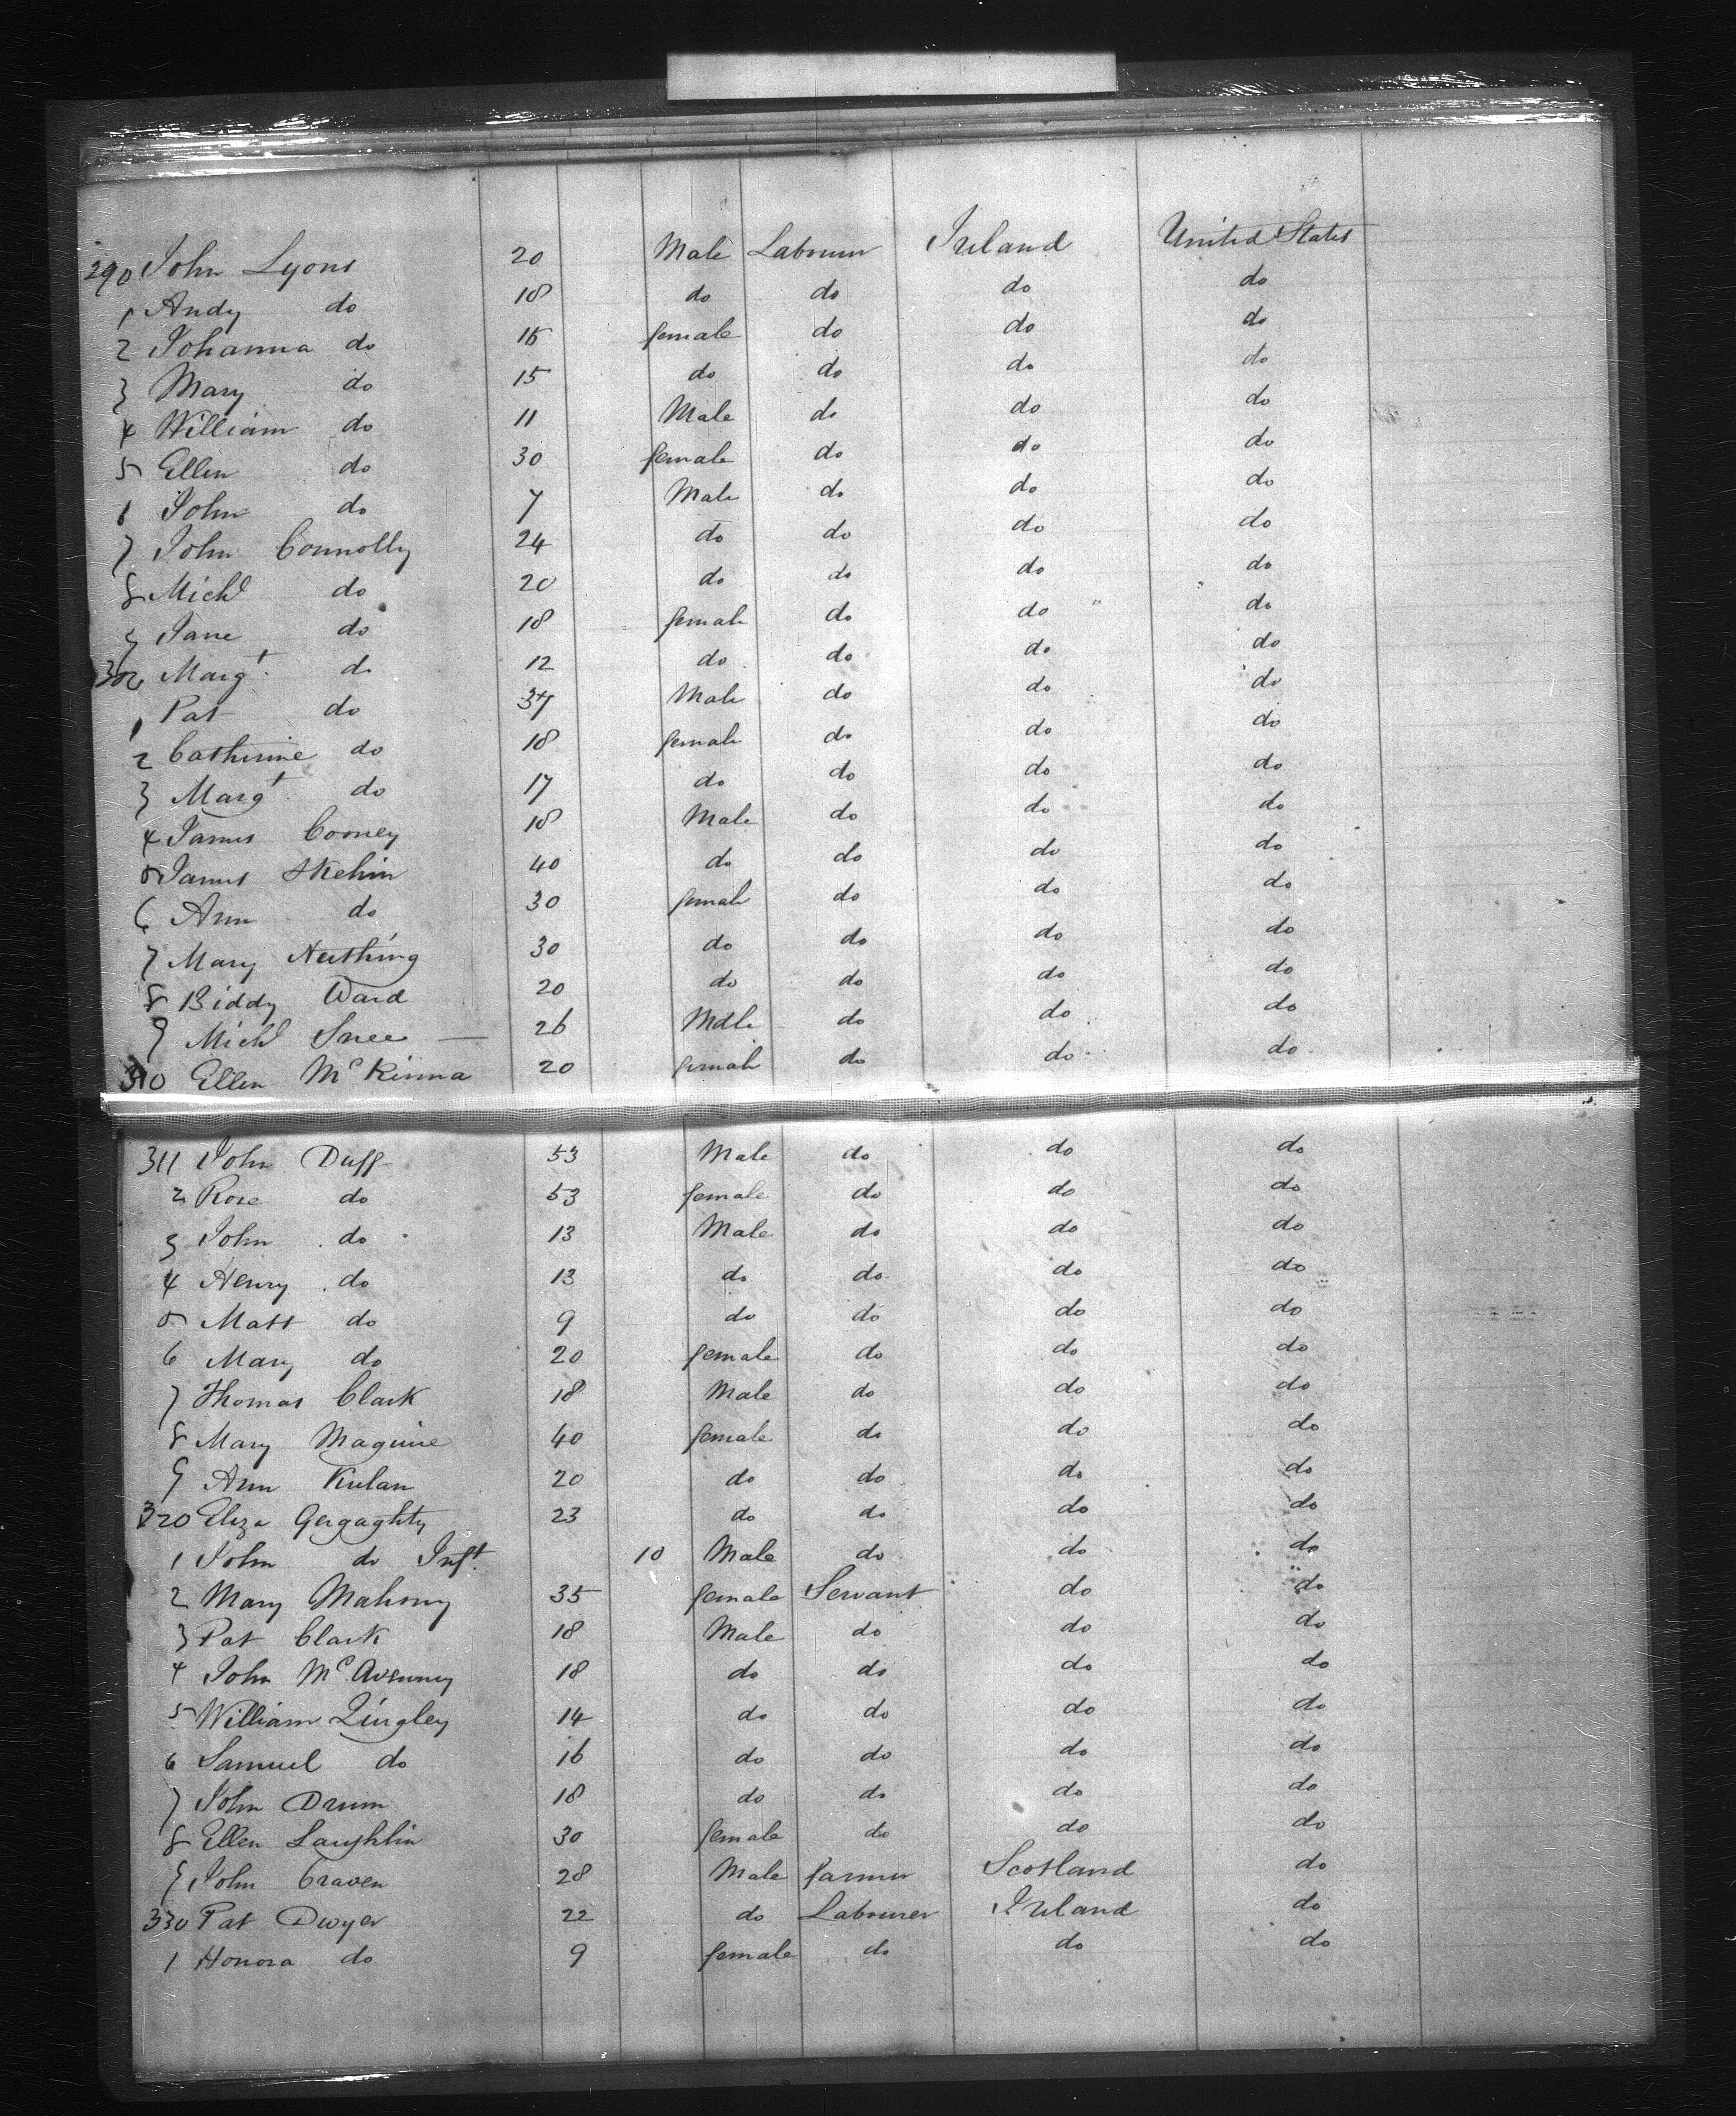 290 John Lyons 20 Male Labourer Ireland United States
1 Andy do 18 do do do do
2 Johanna do 16 female do do do
3 Mary do 15 do do do do
4 William do 11 Male do do do
5 Ellen do 30 female do do do
6 John do 7 Male do do do
7 John Connolly 24 do do do do
8 Michl do 20 do do do do
9 Jane do 18 female do do do
300 Margt do 12 do do do do
1 Pat do 37 Male do do do
2 Catherine do 18 female do do do
3 Margt do 17 do do do do
4 James Cooney 18 Male do do do
5 James Skehin 40 do do do do
6 Ann do 30 female do do do
7 Mary 30 do do do do
8 Biddy Ward 20 do do do do
9 Michl Snee — 26 Male do do do
310 Ellen McKinna 20 female do do do
311 John Duff 53 Male do do do
2 Rose do 53 female do do do
3 John do 13 Male do do do
4 Henry do 13 do do do do
5 Matt do 9 do do do do
6 Mary do 20 female do do do
7 Thomas Clark 18 Male do do do
8 Mary Maguire 40 female do do do
9 Ann 20 do do do do
320 Eliza Gergaghty 23 do do do do
1 John do Inft. 10 Male do do do
2 Mary Mahony 35 female Servant do do
3 Pat Clark 18 Male do do do
4 John McAvenney 18 do do do do
5 William Lingley 14 do do do do
6 Samuel do 16 do do do do
7 John Drum 18 do do do do
8 Ellen Laughlin 30 female do do do
9 John Craven 28 Male Farmer Scotland do
330 Pat Dwyer 22 do Labourer Ireland do
1 Honora do 9 female do do do